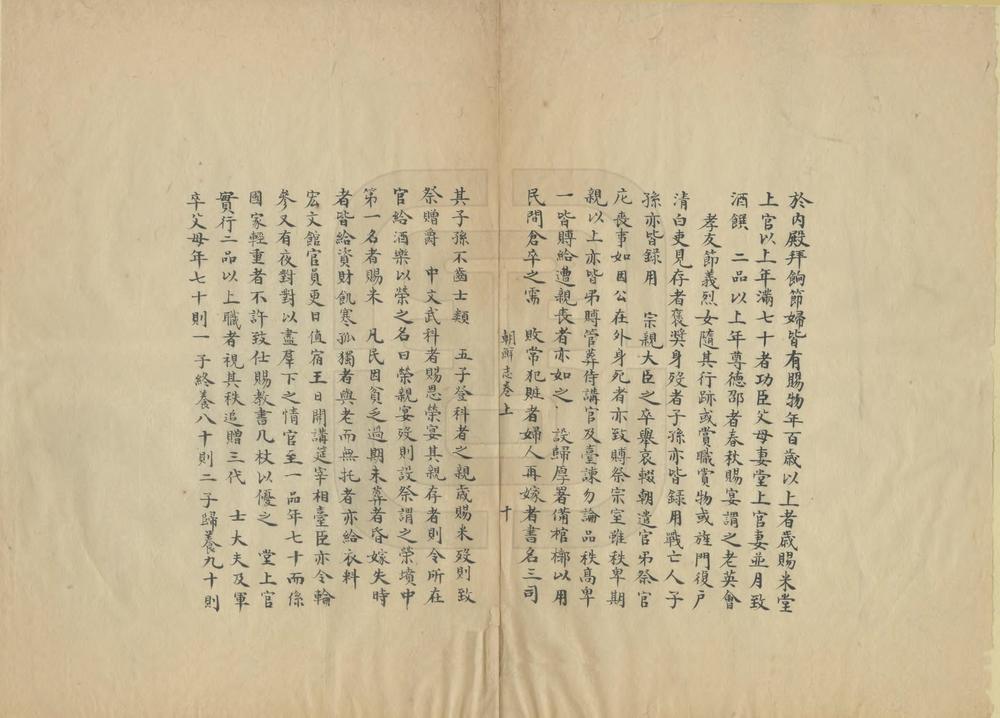 於內殿拜餉節婦皆有賜物年百歲以上者歲賜米堂
上官以上年滿七十者功臣父母妻堂上官妻並月致
酒饌　二品以上年尊德邵者春秋賜宴謂之老英會
孝友節義烈女隨其行跡或賞職賞物或旌門復戶
清白吏見存者褒奬身歿者子孫亦皆録用戰亡人子
孫亦皆録用　宗親大臣之卒舉哀輟朝遣官弔祭官
庀喪事如因公在外身死者亦致賻祭宗室雖秩卑期
親以上亦皆弔賻管葬侍講官及臺諫勿論品秩高卑
一皆賻給遭親喪者亦如之　設歸厚署備棺槨以用
民間倉卒之需　敗常犯賍者婦人再嫁者書名三司
朝鮮志卷上　十
其子孫不齒士類　五子登科者之親歲賜米歿則致
祭贈爵　中文武科者賜恩榮宴其親存者則令所在
官給酒樂以榮之名曰榮親宴歿則設祭謂之榮墳中
第一名者賜米　凡民因貧乏過期未葬者昏嫁失時
者皆給資財飢寒孤獨者與老而無托者亦給衣料
宏文館官員更日值宿王日開講筵宰相臺臣亦令輪
參又有夜對對以盡羣下之情官至一品年七十而係
國家輕重者不許致仕賜教書几杖以優之　堂上官
實行二品以上職者視其秩追贈三代　士大夫及軍
卒父母年七十則一子終養八十則二子歸養九十則